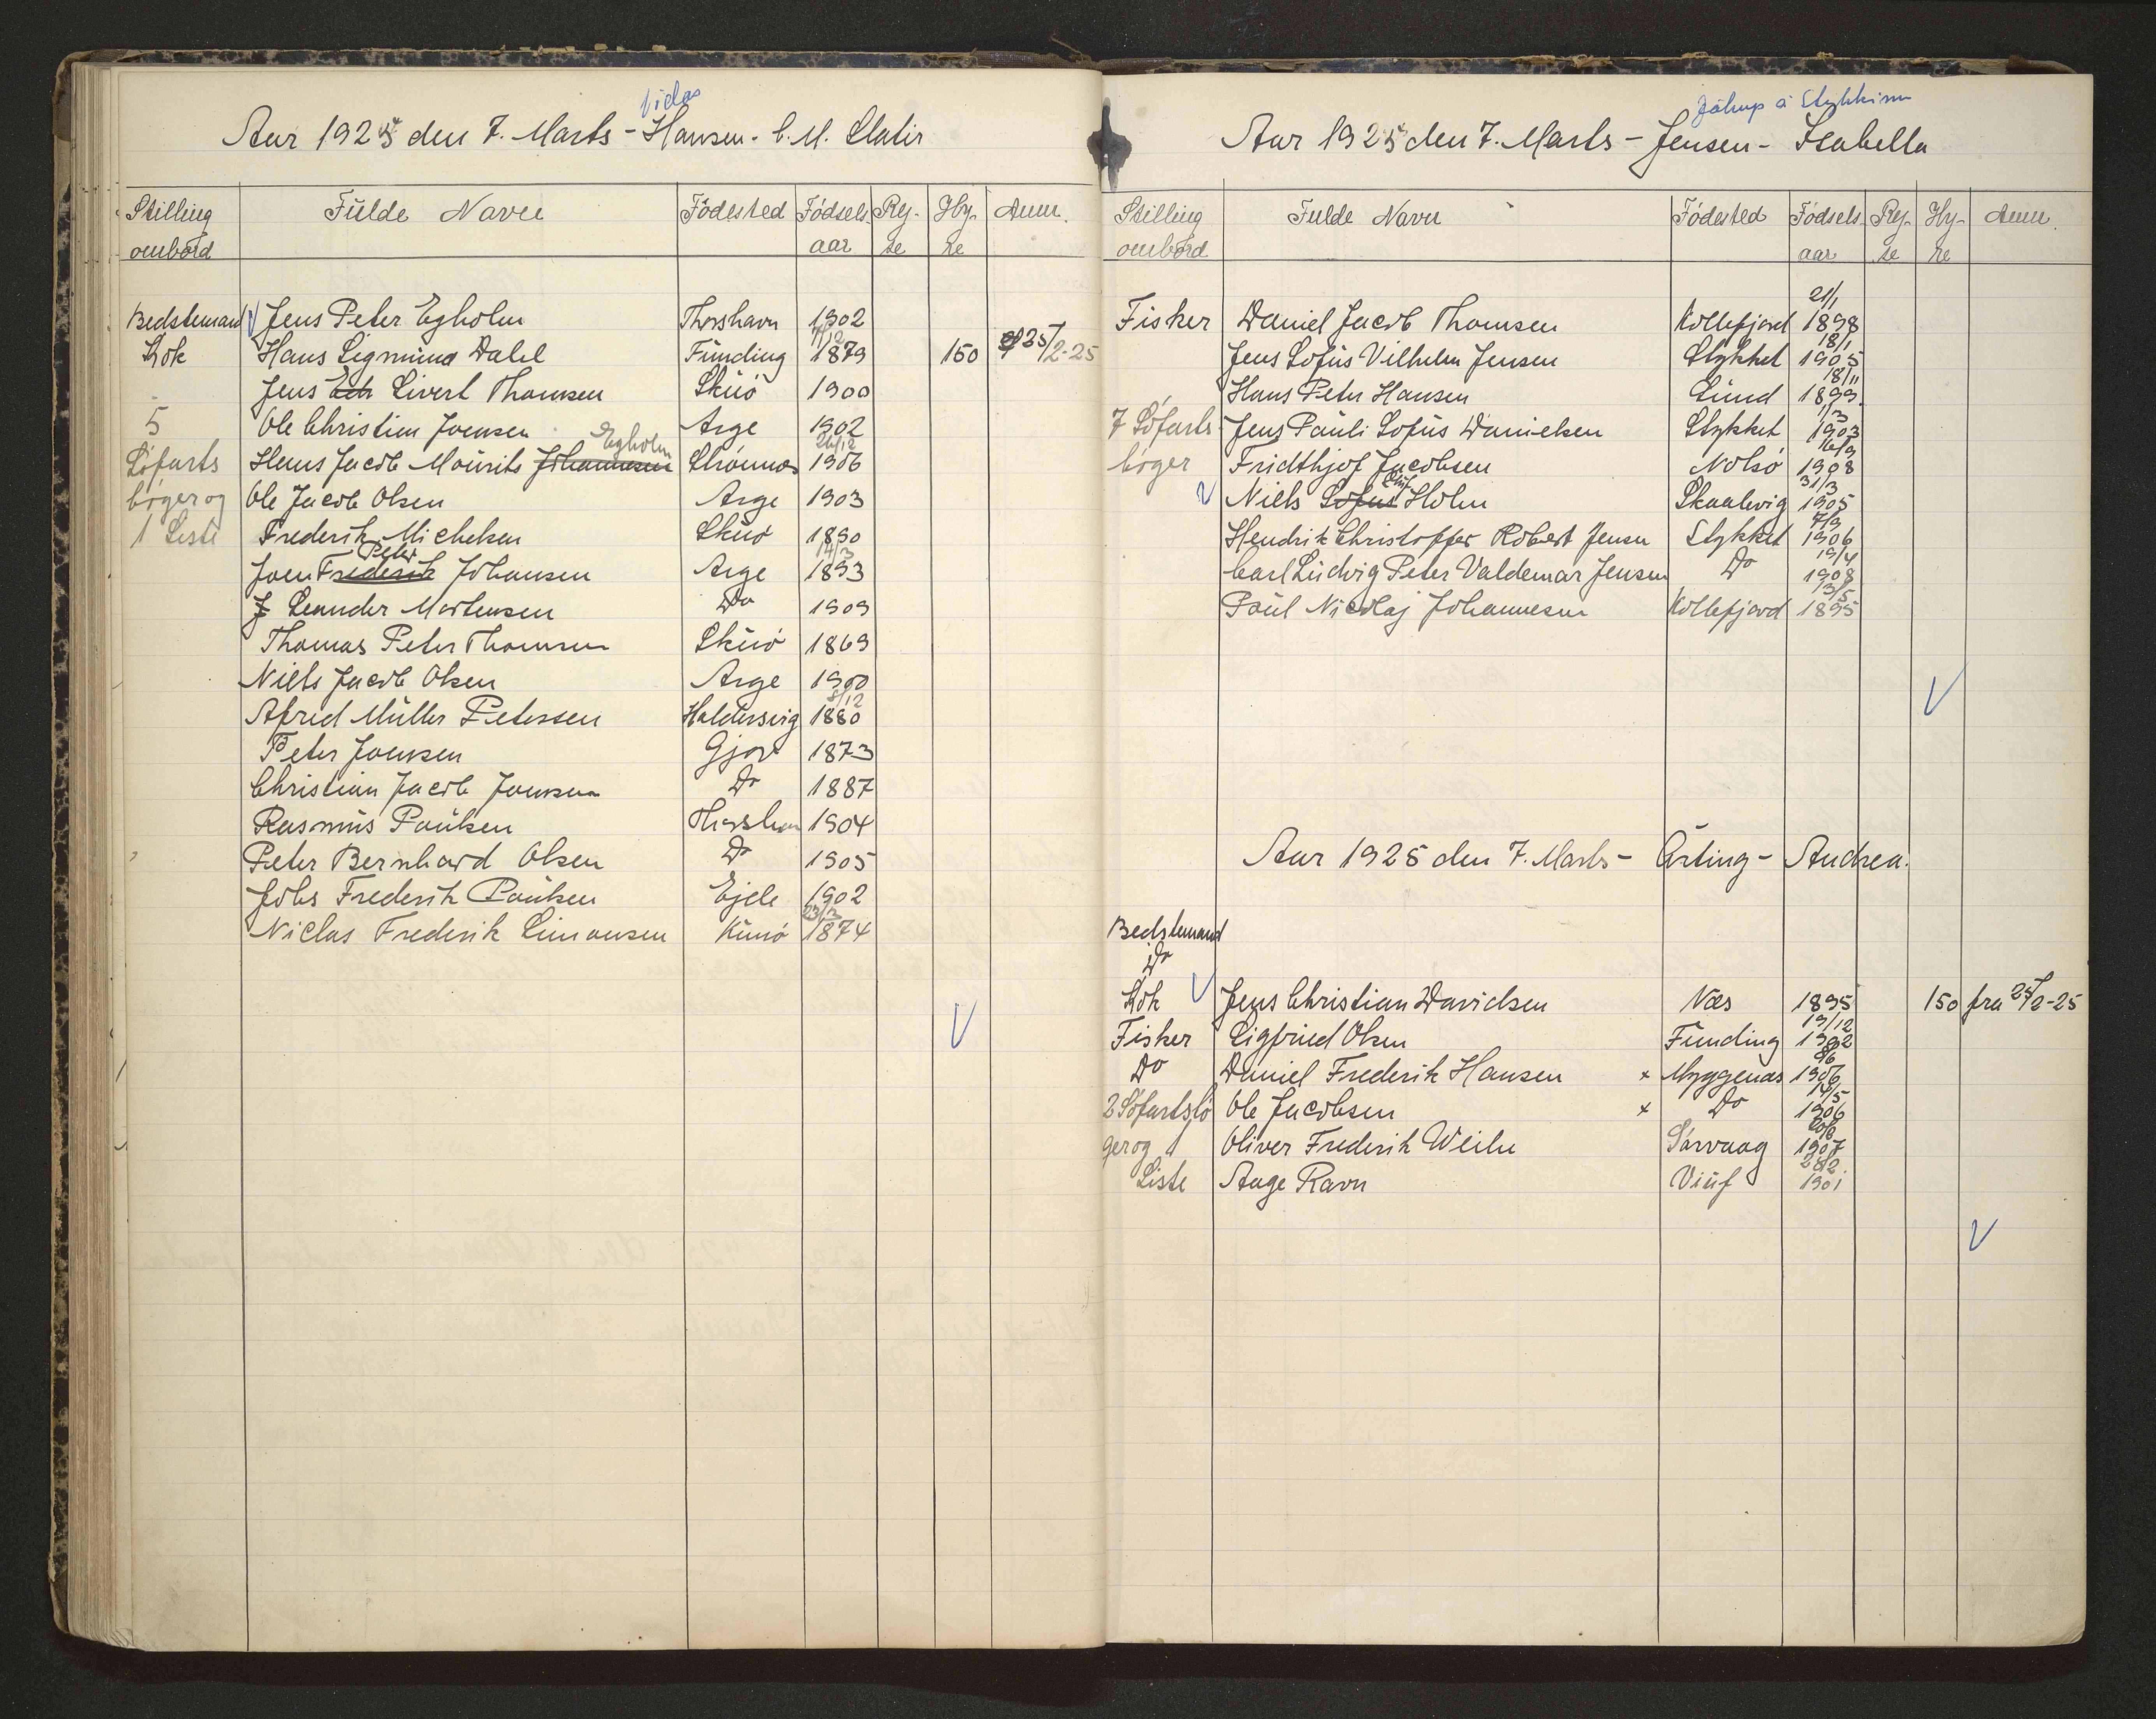 Vidar
Aar 1925 den 7. Marts - Hansen - C. M. Slatir
Stilling ombord Fulde Navn Födested Födsels aar Rej- se Hy- re Anm.
Bedstemand Jens Peter Egholm Thorshavn 1902
Kok Hans Sigmund Dahl Funding 7/12 1879 150 25/2-25
Jens Sivert Thomsen Skuö 1900
5 Ole Christian Joensen Arge 1902
Egholm
Söfarts Hans Jacob Mourits Johannesen Strömnæs 26/12 1906
böger og Ole Jacob Olsen Arge 1903
1 Liste Frederik Michelsen Skuö 1890
Peter
Joen Frederik Johansen Arge 14/3 1893
J Leander Mortensen Do 1909
Thomas Peter Thomsen Skuö 1869
Niels Jacob Olsen Arge 1900
Alfred Müller Petersen Haldersvig 8/12 1880
Peter Joensen Gjov 1873
Christian Jacob Joensen Do 1887
Rasmus Poulsen Thorshavn 1904
Peter Bernhard Olsen Do 1905
Johs Frederik Poulsen Ejde 1902
Niclas Frederik Simonsen Kunö 23/3 1874
Jákup á Stykkinum
Aar 1925 den 7. Marts - Jensen - Isabella
Stilling ombord Fulde Navn Födested Födsels aar Rej- se Hy- re Anm.
Fisker Daniel Jacob Thomsen Kollefjord 21/1 1898
Jens Sofus Vilhelm Jensen Stykket 18/1 1905
Hans Peter Hansen Sund 18/11 1899
7 Söfarts Jens Pauli Sofus Danielsen Stykket 1/3 1903
böger Fridthjof Jacobsen Nolsö 16/9 1908
Niels Sofus Holm Skaalevig 31/3 1905
Hendrik Christoffer Robert Jensen Stykket 7/9 1906
Carl Ludvig Peter Valdemar Jensen Do 19/4 1908
Poul Nicolaj Johannesen Kollefjord 13/5 1895
Aar 1925 den 7. Marts - Arting - Andrea.
Bedstemand
Do
Kok Jens Christian Davidsen Næs 1895 150 fra 25/2-25
Fisker Sigfried Olsen Funding 19/12 1902
Do Daniel Frederik Hansen x Myggenæs 8/6 1906
2 Söfartsbö Ole Jacobsen x Do 14/5 1906
ger og Oliver Frederik Weihe Sörvaag 20/6 1907
Liste Aage Ravn Viuf 28/2. 1901